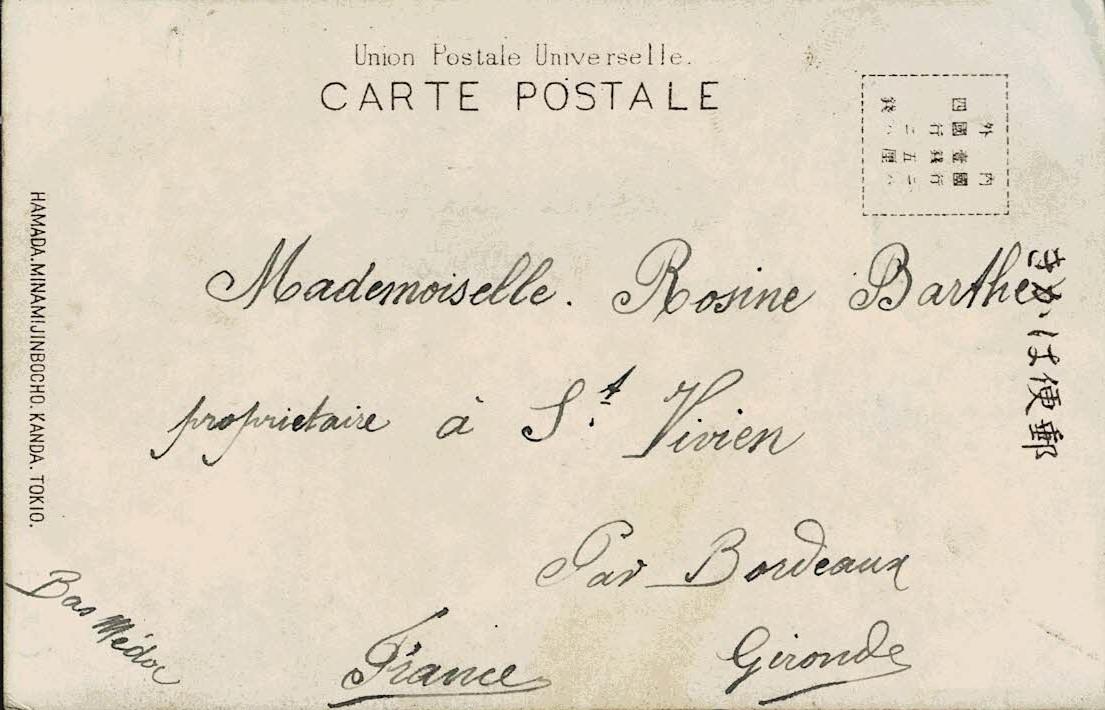 Union Postale Universelle.
CARTE POSTALE
内國行ニハ
壹錢五厘
外國行ニハ
四錢
郵便はかき
HAMADA.MINAMIJINBOCHO.KANDA.TOKIO.
Mademoiselle. Rosine Barthe
proprietaire à St. Vivien
Par Bordeaux
Gironde
France
Bas Médoc